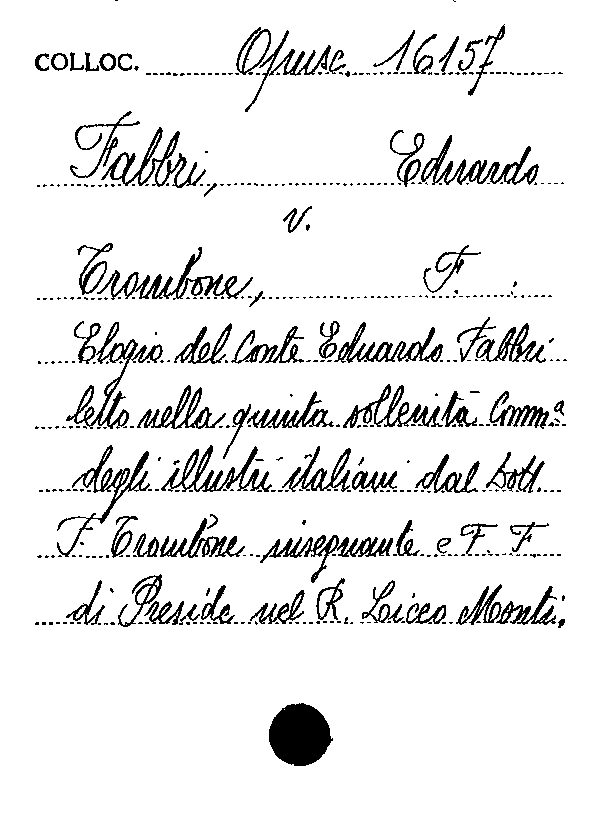 COLLOC. Opusc. 16157
Fabbri, Eduardo
v.
Trombone, F.
Elogio del Conte Eduardo Fabbri
letto nella quinta sollenità Comm.ª
degli illustri italiani dal Dott.
F. Trombone insegnante e F. F.
di Preside nel R. Liceo Monti.